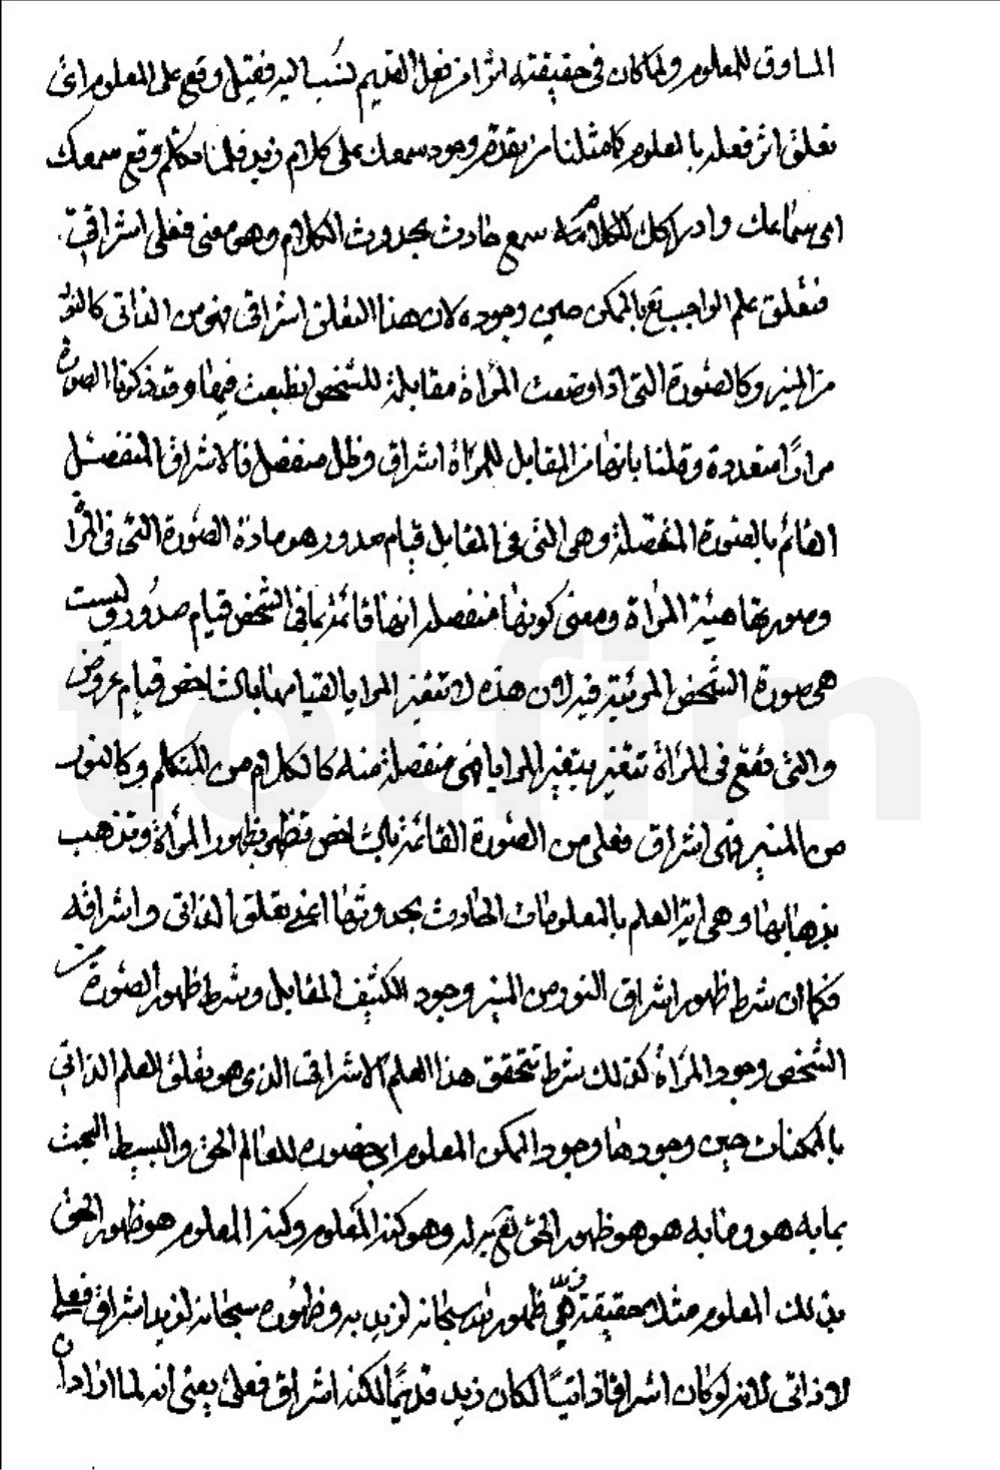 المساوق للمعلوم ولما كان فى حقيقته اثرا من فعل القديم نسب اليه فقيل وقع على المعلوم اى
تعلق اثر فعله بالمعلوم كما مثلنا من تقدم وجود سمعك على كلام زيد فلما تكلم وقع سمعك
اى سماعك وادراكك للكلامه سمع حادث بحدوث الكلام وهو معنى فعلى اشراقى
فتعلق علم الواجب تع بالممكن حين وجوده لان هذا التعلق اشراقى فهو من الذاتى كالنور
من المنير وكالصورة التى اذا وضعت المرآة مقابلة للشخص انطبعت فيها وقد ذكرنا الصورة
مرارًا متعددة وقلنا بانها من المقابل للمرآة اشراق وظل منفصل فالاشراق المنفصل
القائم بالصورة المتصلة وهى التى فى المقابل قيام صدور هو مادة الصورة التى فى المرآ
وصورتها هيئة المرآة ومعنى كونها منفصلة انها قائمة بما فى الشخص قيام صدور وليست
هى صورة الشخص المرئية فيه لان هذه لا تتغير المرايا لقيامها بالشاخص قيام عروض
والتى تقع فى المرآة تتغير بتغير المرايا فهى منفصلة منه كالكلام من المتكلم وكالنور
من المنير فهى اشراق فعلى من الصورة القائمة بالشاخص تظهر بظهور المرآة وتذهب
بذهابها وهى اثر العلم بالمعلومات الحادث بحدوثها اعنى تعلق الذاتى واشراقه
فكما ان شرط ظهور اشراق النور من المنير وجود الكثيف المقابل وشرط ظهور الصورة من
الشخص وجود المرآة كذلك شرط تحقق هذا العلم الاشراقى الذى هو تعلق العلم الذاتى
بالممكنات حين وجودها وجود الممكن المعلوم اى حضوره للعالم الحق والبسيط البحت
بما به هو وما به هو هو ظهور الحق تع به له وهو كنه المعلوم وكنه المعلوم هو ظهور الحق
بذلك المعلوم مثلا حقيقة زيد هى ظهور الله سبحانه لزيد به وظهوره سبحانه لزيد اشراق فعلى
لا ذاتى لانه لو كان اشراقا ذاتيا لكان زيد قديمًا لكنه اشراق فعلى يعنى انه لما اراد ان